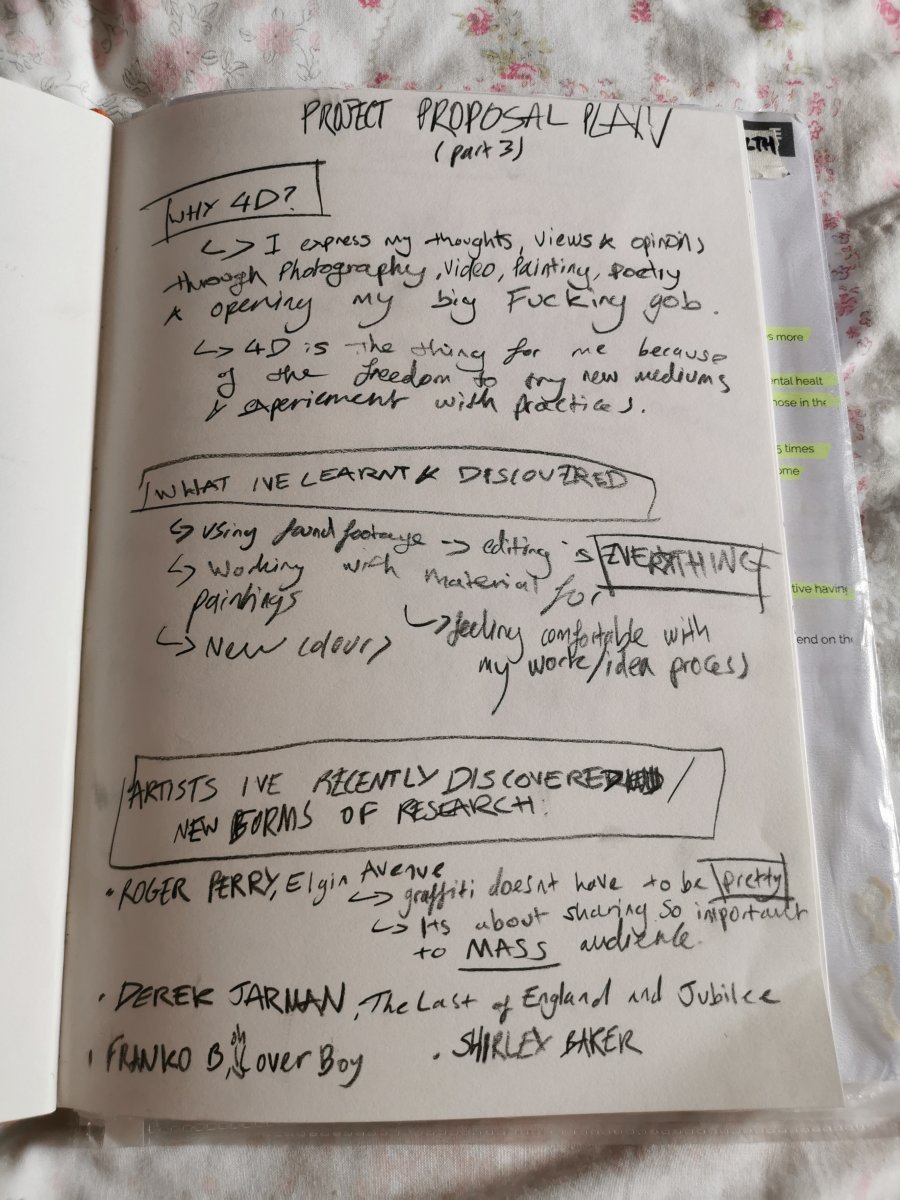 PROJECT PROPOSAL PLAN
(part 3)
WHY 4D?
↳ I express my thoughts, views & opinons
through Photography, Video, Painting, Poetry
& opening my big Fucking gob.
↳ 4D is the thing for me because
of the freedom to try new mediums
& experiement with practices.
WHAT IVE LEARNT & DISCOVERED
↳ Using found footage → editing is EVERYTHING
↳ Working with material for
paintings
↳ New colours
↳ feeling comfortable with
my work/idea process
ARTISTS IVE RECENTLY DISCOVERED /
NEW FORMS OF RESEARCH.
• ROGER PERRY, Elgin Avenue
↳ graffiti doesnt have to be pretty
↳ Its about sharing so important
to MASS audience.
• DEREK JARMAN, The Last of England and Jubilee
• FRANKO B, oh Lover Boy
• SHIRLEY BAKER
LTH
s more
ental healt
hose in the
5 times
ome
tive having
end on the